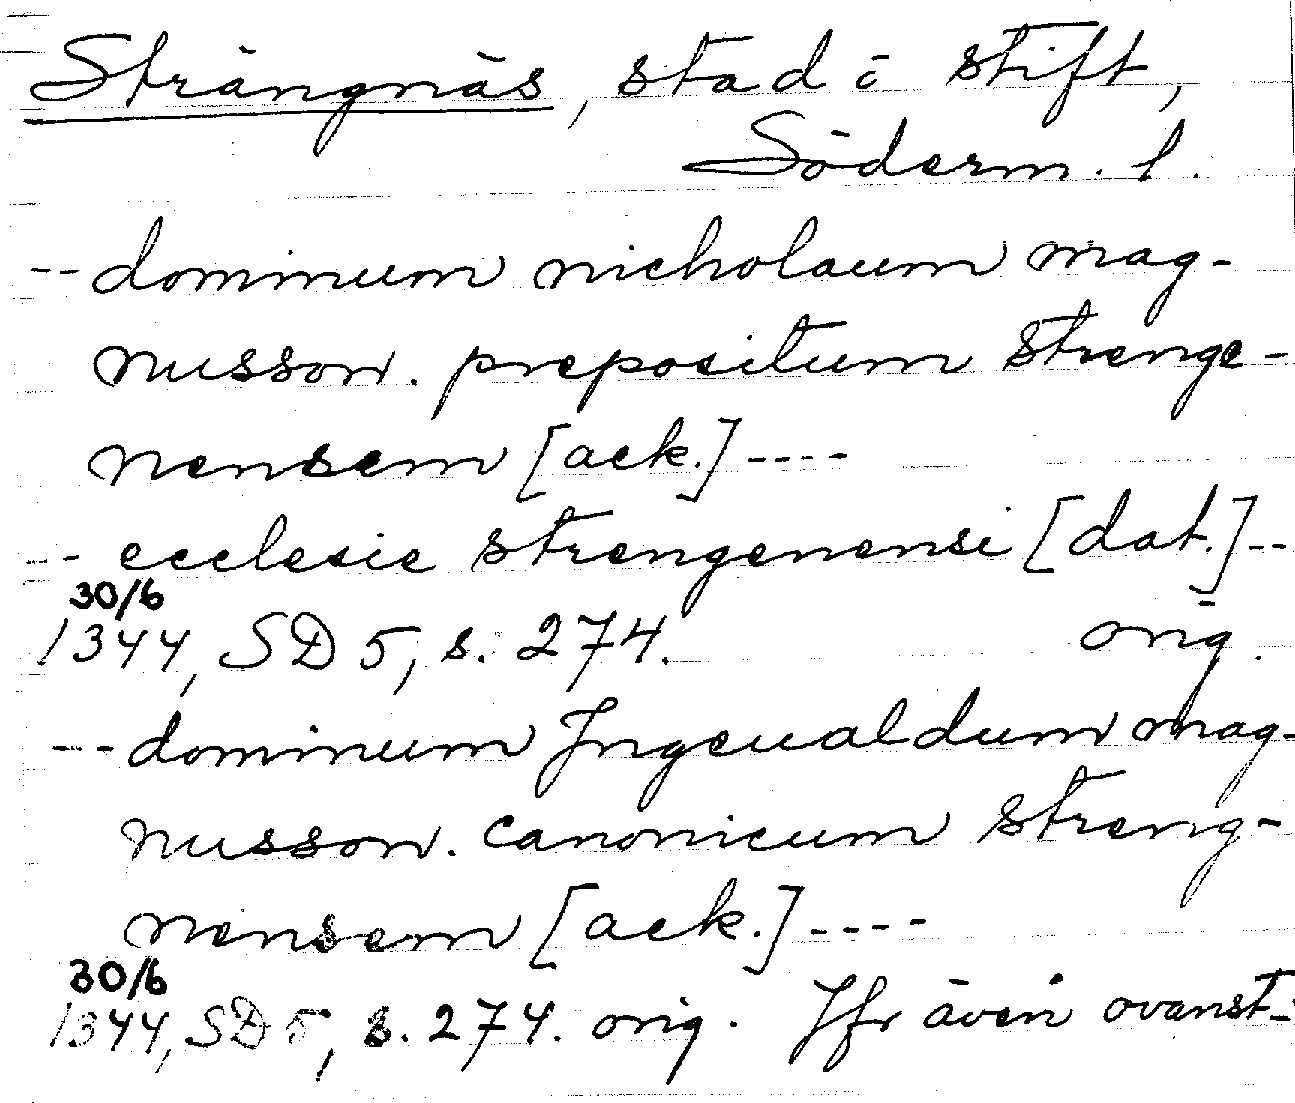 Strängnäs, stad o stift,
Söderm. l.
-- dominum nicholaum mag-
nusson. prepositum strenge-
nensem [ack.] ----
-- ecclesie strengenensi [dat.] --
30/6
1344, SD 5, s. 274. orig.
--- dominum Jngeualdum mag-
nusson. canonicum streng-
nensem [ack.] ----
30/6
1344, SD 5, s. 274. orig. Jfr även ovanst.